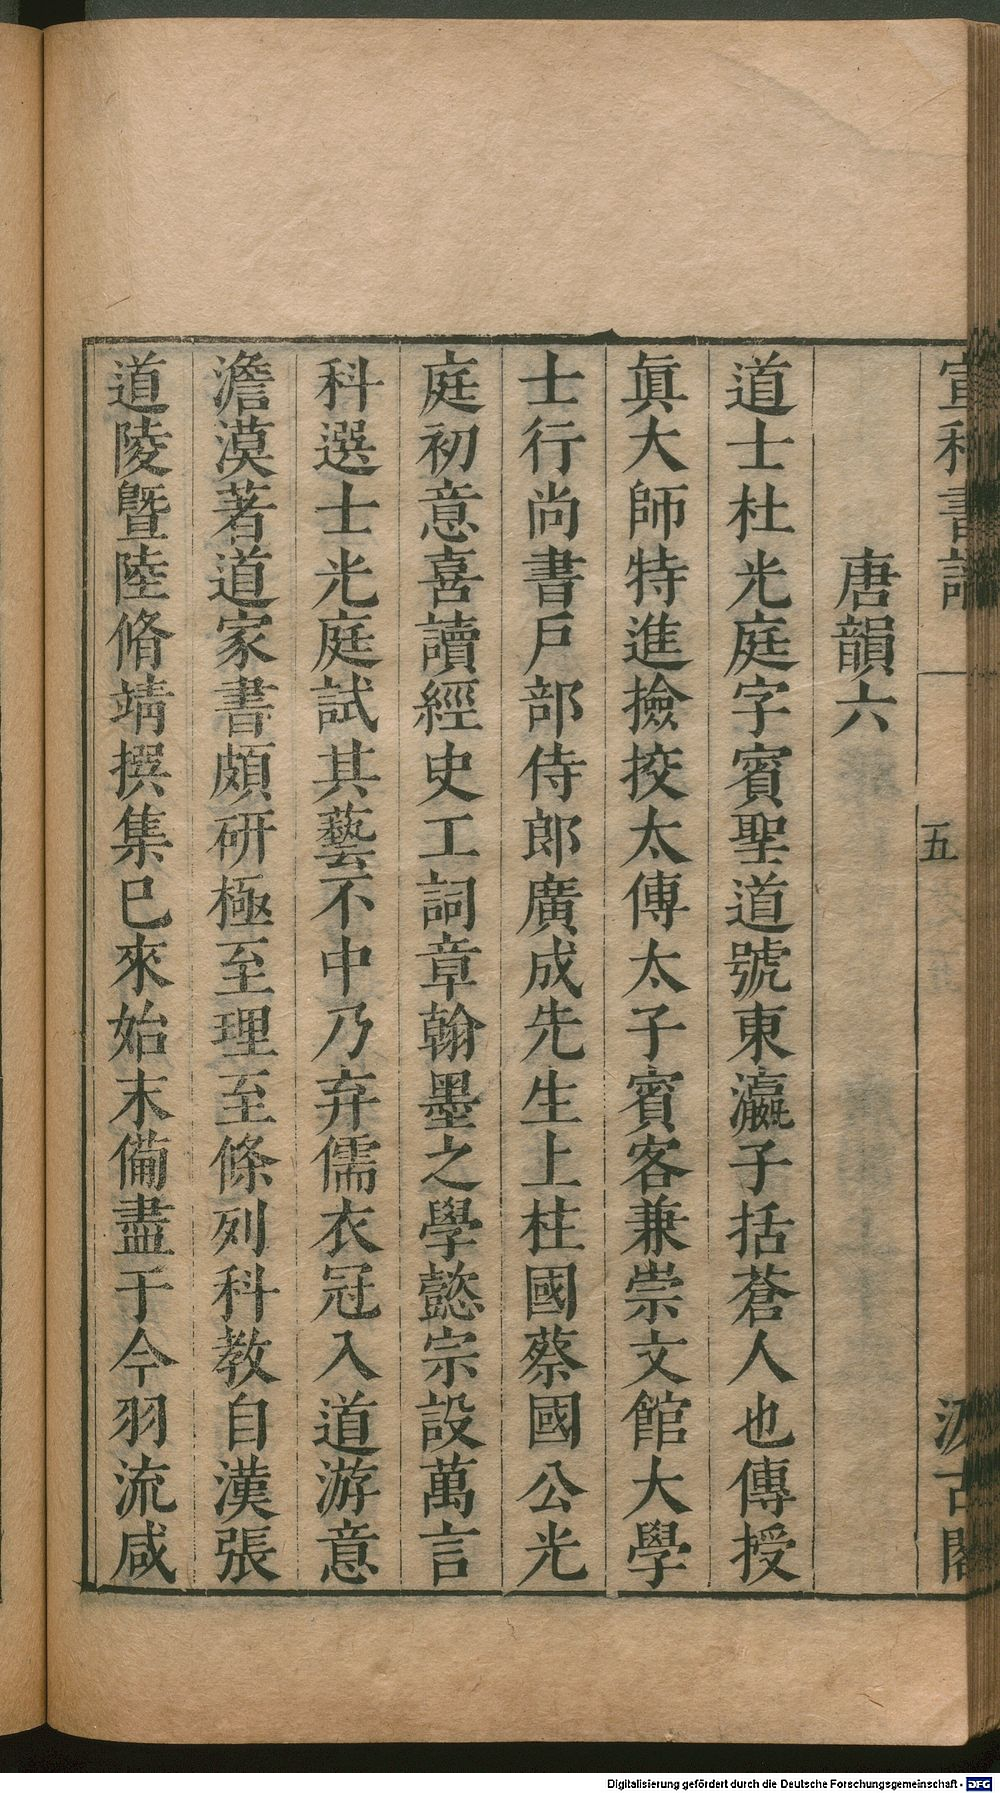 宣和書譜
五
汲古閣
唐韻六
道士杜光庭字賓聖道號東瀛子括蒼人也傳授
眞大師特進撿挍太傅太子賓客兼崇文館大學
士行尚書戶部侍郎廣成先生上柱國蔡國公光
庭初意喜讀經史工詞章翰墨之學懿宗設萬言
科選士光庭試其藝不中乃弃儒衣冠入道游意
澹漠著道家書頗研極至理至條列科教自漢張
道陵暨陸脩靖撰集已來始末備盡于今羽流咸
Digitalisierung gefördert durch die Deutsche Forschungsgemeinschaft - DFG